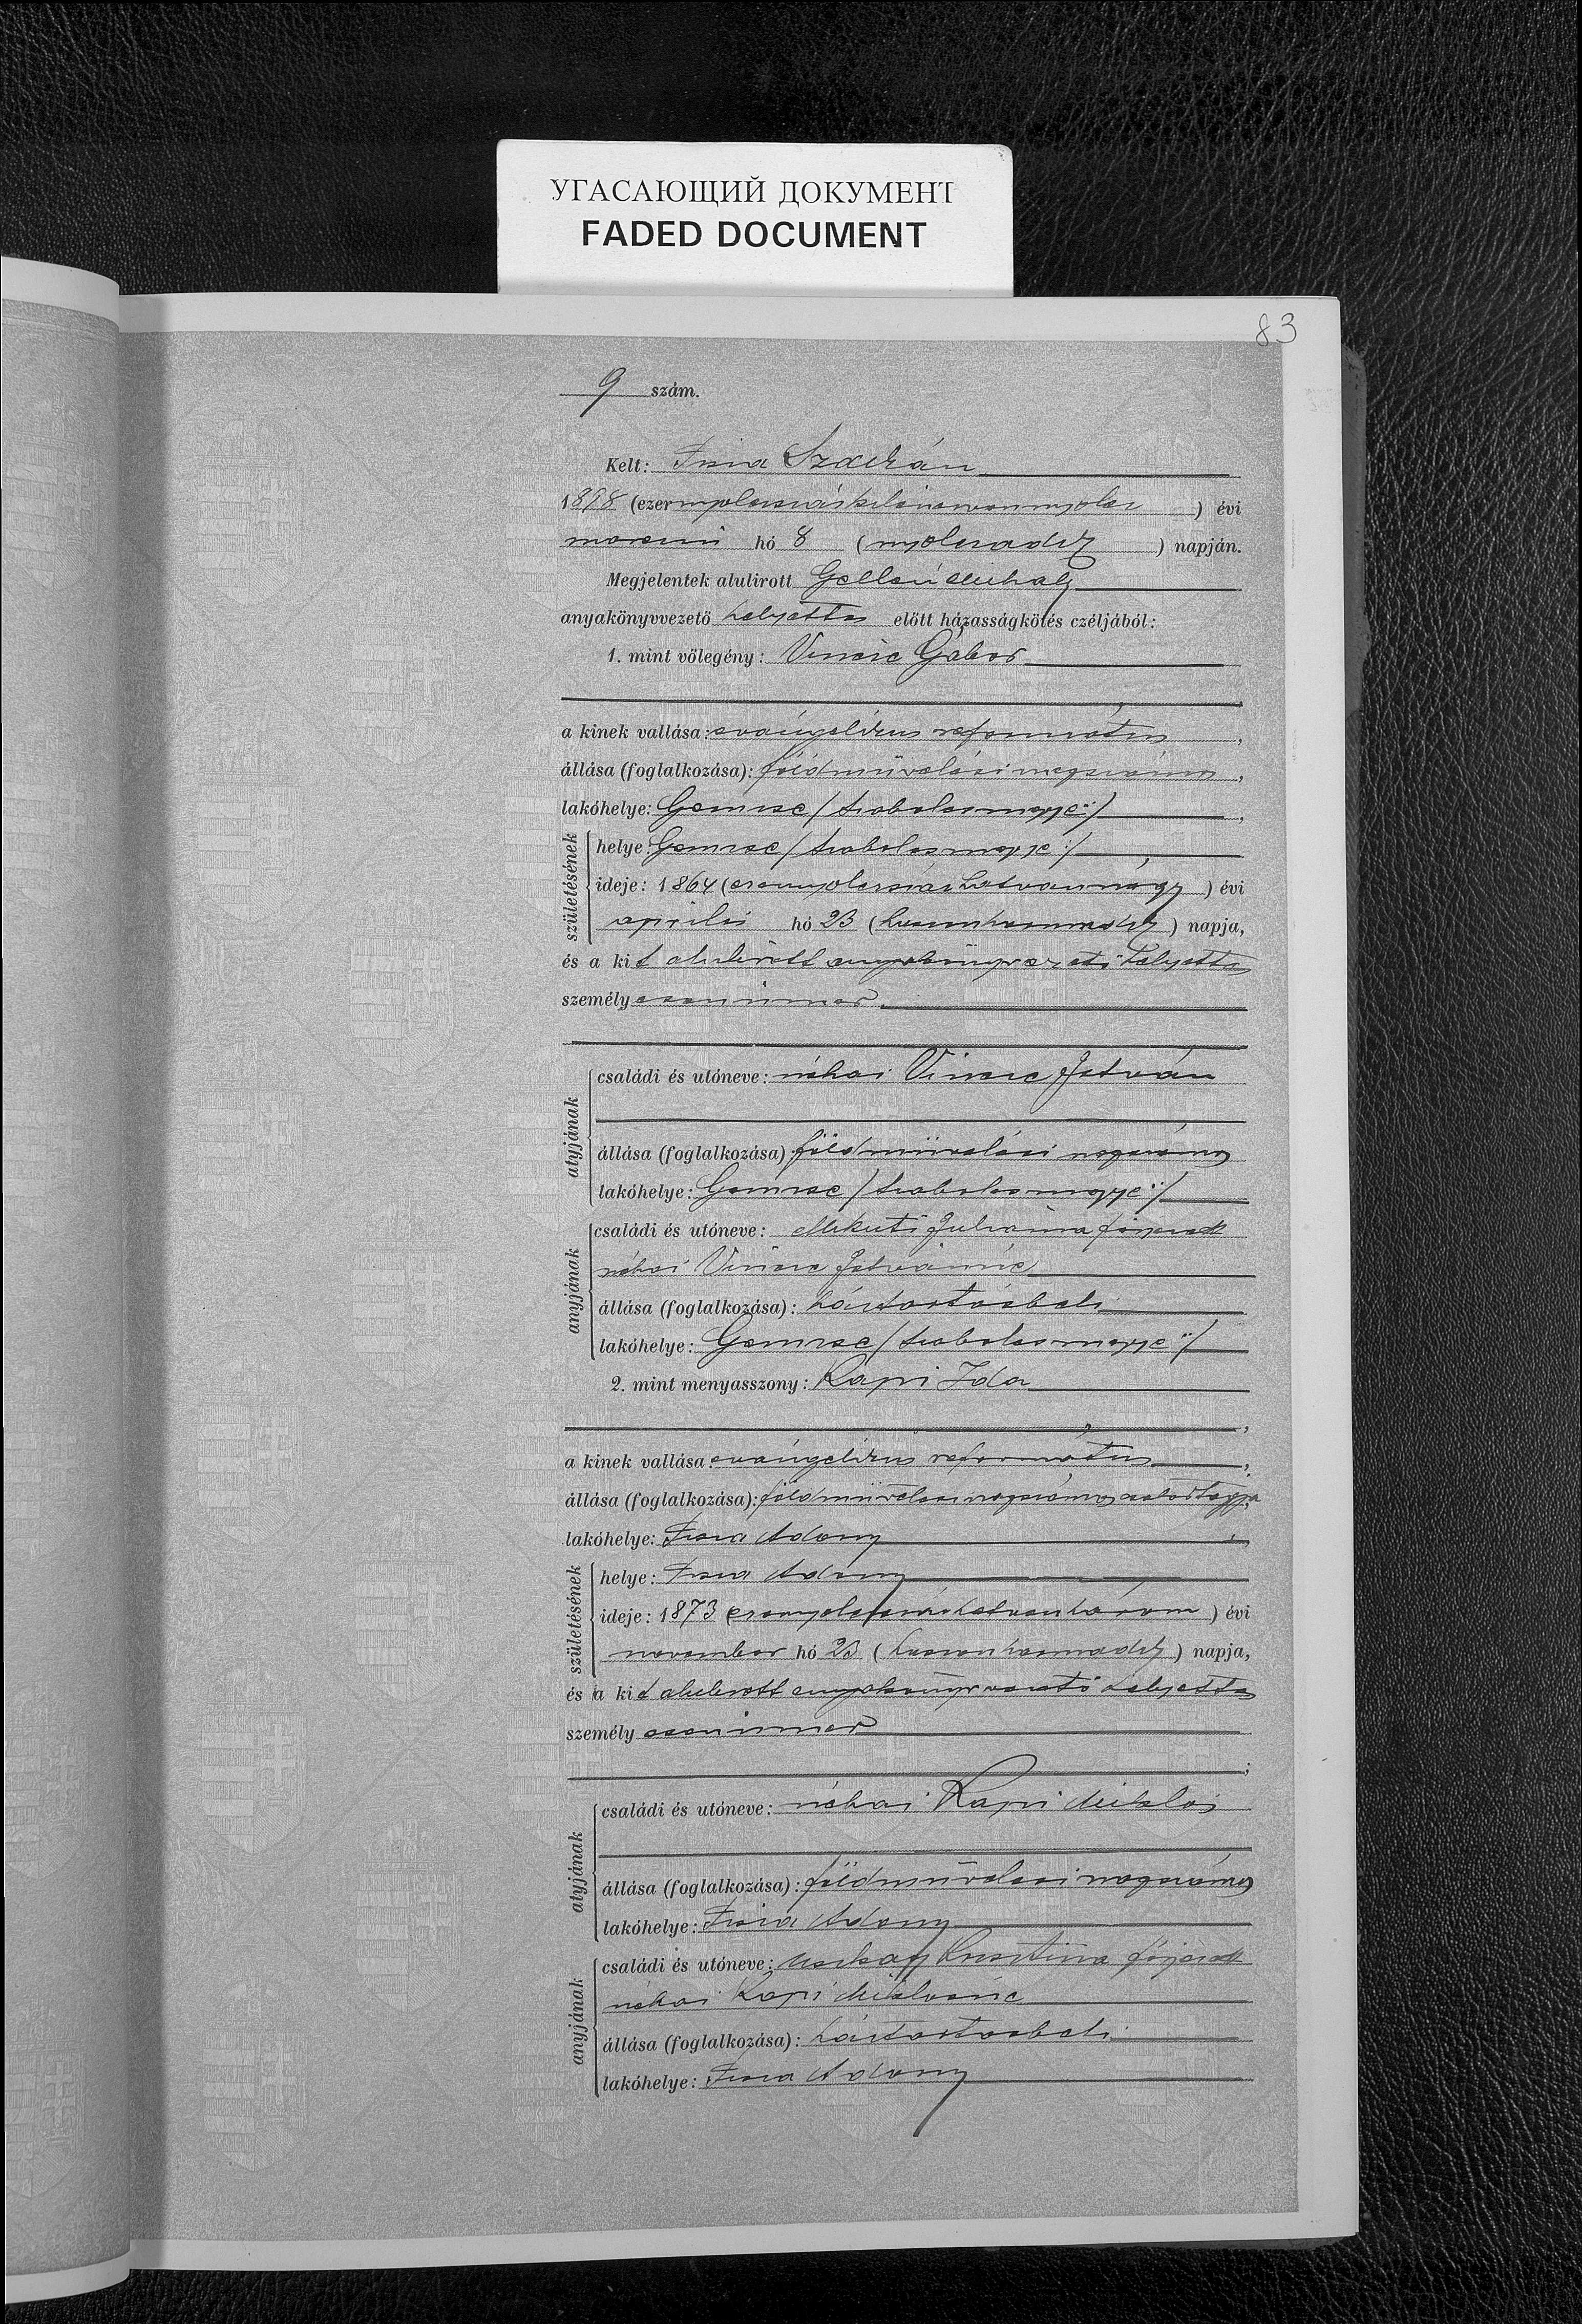 УГАСАЮЩИЙ ДОКУМЕНТ
FADED DOCUMENT
83
9 szám.
Kelt: Tisza Szalkán
1898 (ezernyolczszázkilenczvennyolcz) évi
marczius hó 8 (nyolczadik) napján.
Megjelentek alulirott Gellén Mihály
anyakönyvvezető helyettes előtt házasságkötés czéljából:
1. mint vőlegény: Vincze Gábor
a kinek vallása: evángelikus református,
állása (foglalkozása): földmüvelési napszámos,
lakóhelye: Gemzse /: szabolcsmegye :/,
születésének
helye: Gemzse /: szabolcsmegye :/
ideje: 1864 (ezernyolczszázhatvannégy) évi
április hó 23 (huszonharmadik) napja,
és a kit alulirott anyakönyvvezető helyettes
személyesen ismer
atyjának
családi és utóneve: néhai Vincze István
állása (foglalkozása): földmüvelési napszámos
lakóhelye: Gemzse /: szabolcsmegye :/
anyjának
családi és utóneve: Julianna férjezett
néhai Vincze Istvánné
állása (foglalkozása): háztartásbeli
lakóhelye: Gemzse /: szabolcsmegye :/
2. mint menyasszony: Kapi Ida
a kinek vallása: evángelikus református,
állása (foglalkozása): földmüvelési napszámos család tagja,
lakóhelye: Tisza Adony,
születésének
helye: Tisza Adony
ideje: 1873 (ezernyolczszázhetvenhárom) évi
november hó 23 (huszonharmadik) napja,
és a kit alulirott anyakönyvvezető helyettes
személyesen ismer
;
atyjának
családi és utóneve: néhai Kapi Miklós
állása (foglalkozása): földmüvelési napszámos
lakóhelye: Tisza Adony
anyjának
családi és utóneve: Krisztina férjezett
néhai Kapi Miklósné
állása (foglalkozása): háztartásbeli
lakóhelye: Tisza Adony